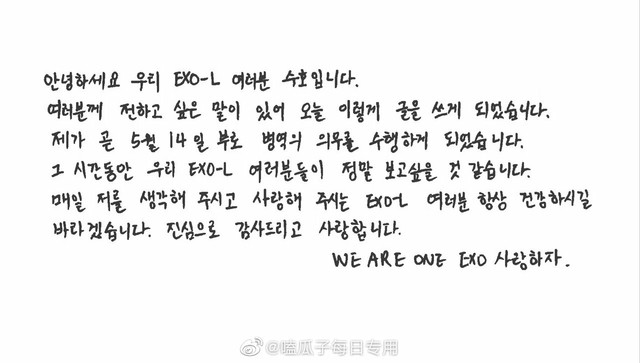 안녕하세요 우리 EXO-L 여러분 수호입니다.
여러분께 전하고 싶은 말이 있어 오늘 이렇게 글을 쓰게 되었습니다.
제가 곧 5월 14일 부로 병역의 의무를 수행하게 되었습니다.
그 시간동안 우리 EXO-L 여러분들이 정말 보고싶을 것 같습니다.
매일 저를 생각해 주시고 사랑해 주시는 EXO-L 여러분 항상 건강하시길
바라겠습니다. 진심으로 감사드리고 사랑합니다.
WE ARE ONE EXO 사랑하자.
@嗑瓜子每日专用